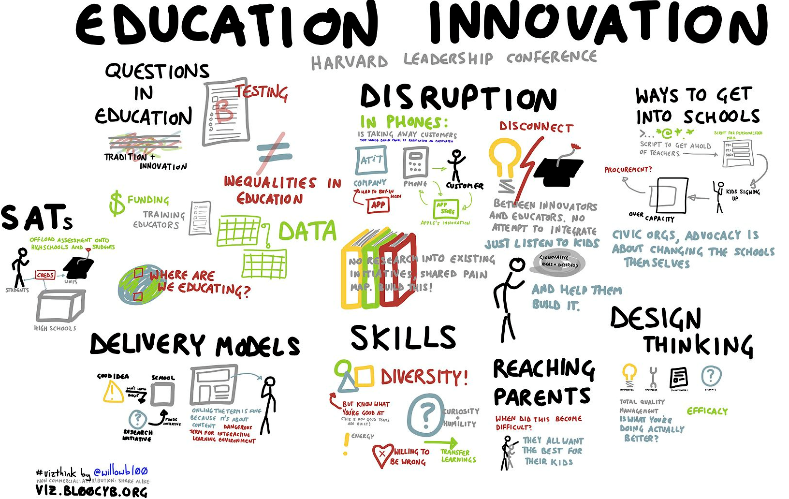 EDUCATION INNOVATION
HARVARD LEADERSHIP CONFERENCE
QUESTIONS
IN
EDUCATION
TESTING
B
TRADITION +
INNOVATION
INEQUALITIES IN
EDUCATION
$ FUNDING
TRAINING
EDUCATORS
DATA
WHERE ARE
WE EDUCATING?
SATs
OFFLOAD ASSESSMENT ONTO
HIGH SCHOOLS AND STUDENTS
STUDENTS
UNIS
HIGH SCHOOLS
DISRUPTION
IN PHONES:
IS TAKING AWAY CUSTOMERS
AT&T
COMPANY
PHONE
CUSTOMER
APP
APP
STORE
APPLE'S INNOVATION
DISCONNECT
BETWEEN INNOVATORS
AND EDUCATORS. NO
ATTEMPT TO INTEGRATE
JUST LISTEN TO KIDS
AND HELP THEM
BUILD IT.
NO RESEARCH INTO EXISTING
INITIATIVES. SHARED PAIN
MAP. BUILD THIS!
WAYS TO GET
INTO SCHOOLS
>...@*.*
SCRIPT TO GET AHOLD
OF TEACHERS
PROCUREMENT?
KIDS SIGNING
UP
OVER CAPACITY
CIVIC ORGS, ADVOCACY IS
ABOUT CHANGING THE SCHOOLS
THEMSELVES
DELIVERY MODELS
GOOD IDEA
SCHOOL
?
RESEARCH
INITIATIVE
ONLINE THE TERM IS FINE
BECAUSE IT'S ABOUT
CONTENT DANGEROUS
TERM FOR INTERACTIVE
LEARNING ENVIRONMENT
SKILLS
DIVERSITY!
BUT KNOW WHAT
YOU'RE GOOD AT
?
CURIOSITY
+
HUMILITY
! ENERGY
X WILLING TO
BE WRONG
TRANSFER
LEARNINGS
REACHING
PARENTS
WHEN DID THIS BECOME
DIFFICULT?
THEY ALL WANT
THE BEST FOR
THEIR KIDS
DESIGN
THINKING
?
TOTAL QUALITY
MANAGEMENT
IS WHAT YOU'RE
DOING ACTUALLY
BETTER?
EFFICACY
#vizthink by @willowbl00
NON COMMERCIAL, ATTRIBUTION, SHARE ALIKE
VIZ.BL00CYB.ORG